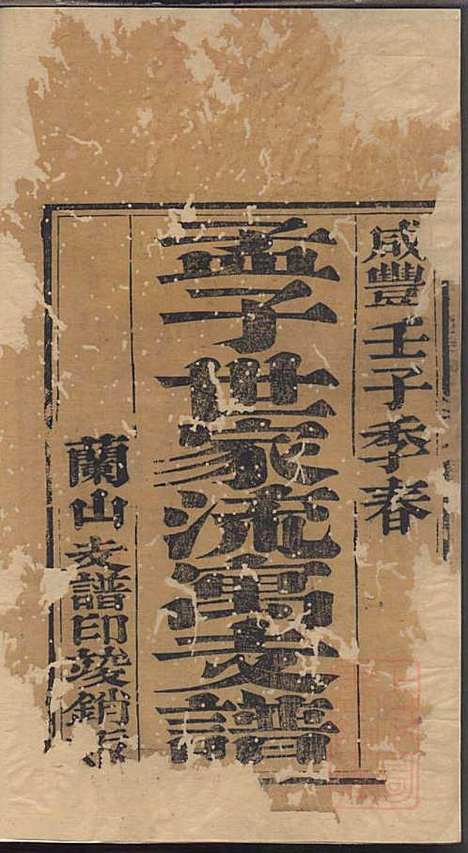 咸豐壬子季春
孟子世家流寓支譜
蘭山支譜印發銷